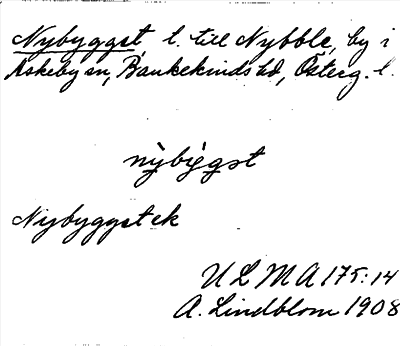 Nybyggst, l. till Nybble, by i
Askeby sn, Bankekinds hd, Österg. l.
nỳbìggst
Nybyggst ek
ULMA 175:14
A. Lindblom 1908